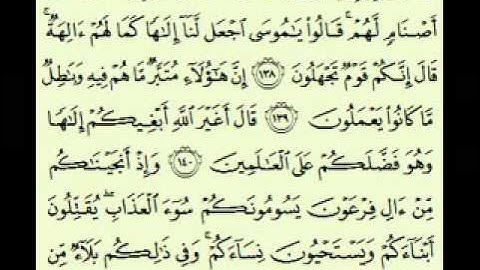 أَصۡنَامٖ لَّهُمۡۚ قَالُواْ يَٰمُوسَى ٱجۡعَل لَّنَآ إِلَٰهٗا كَمَا لَهُمۡ ءَالِهَةٞۚ
قَالَ إِنَّكُمۡ قَوۡمٞ تَجۡهَلُونَ ١٣٨ إِنَّ هَٰٓؤُلَآءِ مُتَبَّرٞ مَّا هُمۡ فِيهِ وَبَٰطِلٞ
مَّا كَانُواْ يَعۡمَلُونَ ١٣٩ قَالَ أَغَيۡرَ ٱللَّهِ أَبۡغِيكُمۡ إِلَٰهٗا
وَهُوَ فَضَّلَكُمۡ عَلَى ٱلۡعَٰلَمِينَ ١٤٠ وَإِذۡ أَنجَيۡنَٰكُم
مِّنۡ ءَالِ فِرۡعَوۡنَ يَسُومُونَكُمۡ سُوٓءَ ٱلۡعَذَابِ يُقَتِّلُونَ
أَبۡنَآءَكُمۡ وَيَسۡتَحۡيُونَ نِسَآءَكُمۡۚ وَفِي ذَٰلِكُم بَلَآءٞ مِّن